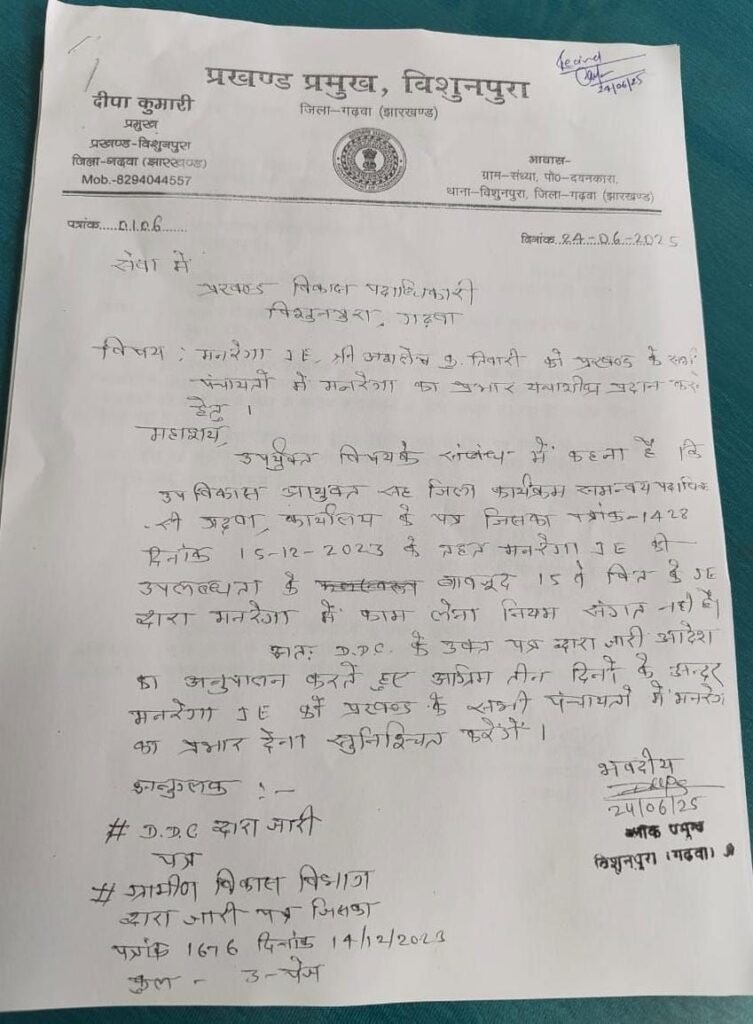 24/06/25
प्रखण्ड प्रमुख, विशुनपुरा
जिला-गढ़वा (झारखण्ड)
दीपा कुमारी
प्रमुख
प्रखण्ड-विशुनपुरा
जिला-गढ़वा (झारखण्ड)
Mob.-8294044557
आवास-
ग्राम-संध्या, पो०-दयनकारा,
थाना-विशुनपुरा, जिला-गढ़वा (झारखण्ड)
पत्रांक.....0106......
दिनांक.24-06-2025
सेवा में
प्रखण्ड विकास पदाधिकारी
विशुनपुरा, गढ़वा
विषय : मनरेगा JE, श्री कु. तिवारी को प्रखण्ड के सभी
पंचायतों में मनरेगा का प्रभार यथाशीघ्र प्रदान करने
हेतु ।
महाशय,
उपर्युक्त विषय के संबंध में कहना है कि
उप विकास आयुक्त सह जिला कार्यक्रम समन्वय पदाधिक
-री गढ़वा, कार्यालय के पत्र जिसका पत्रांक-1428
दिनांक 15-12-2023 के तहत मनरेगा JE की
उपलब्धता के बावजूद 15 वे वित के JE
द्वारा मनरेगा में काम लेना नियम संगत नहीं है।
अतः D.D.C. के उक्त पत्र द्वारा जारी आदेश
का अनुपालन करते हुए अग्रिम तीन दिनों के अन्दर
मनरेगा JE को प्रखण्ड के सभी पंचायतों में मनरेगा
का प्रभार देना सुनिश्चित करेंगें ।
अनुलक :-
# D.D.C द्वारा जारी
पत्र
# ग्रामीण विकास विभाग
द्वारा जारी पत्र जिसका
पत्रांक 1676 दिनांक 14/12/2023
कुल - 3-पेज
भवदीय
24/06/25
प्रमुख
विशुनपुरा (गढ़वा)